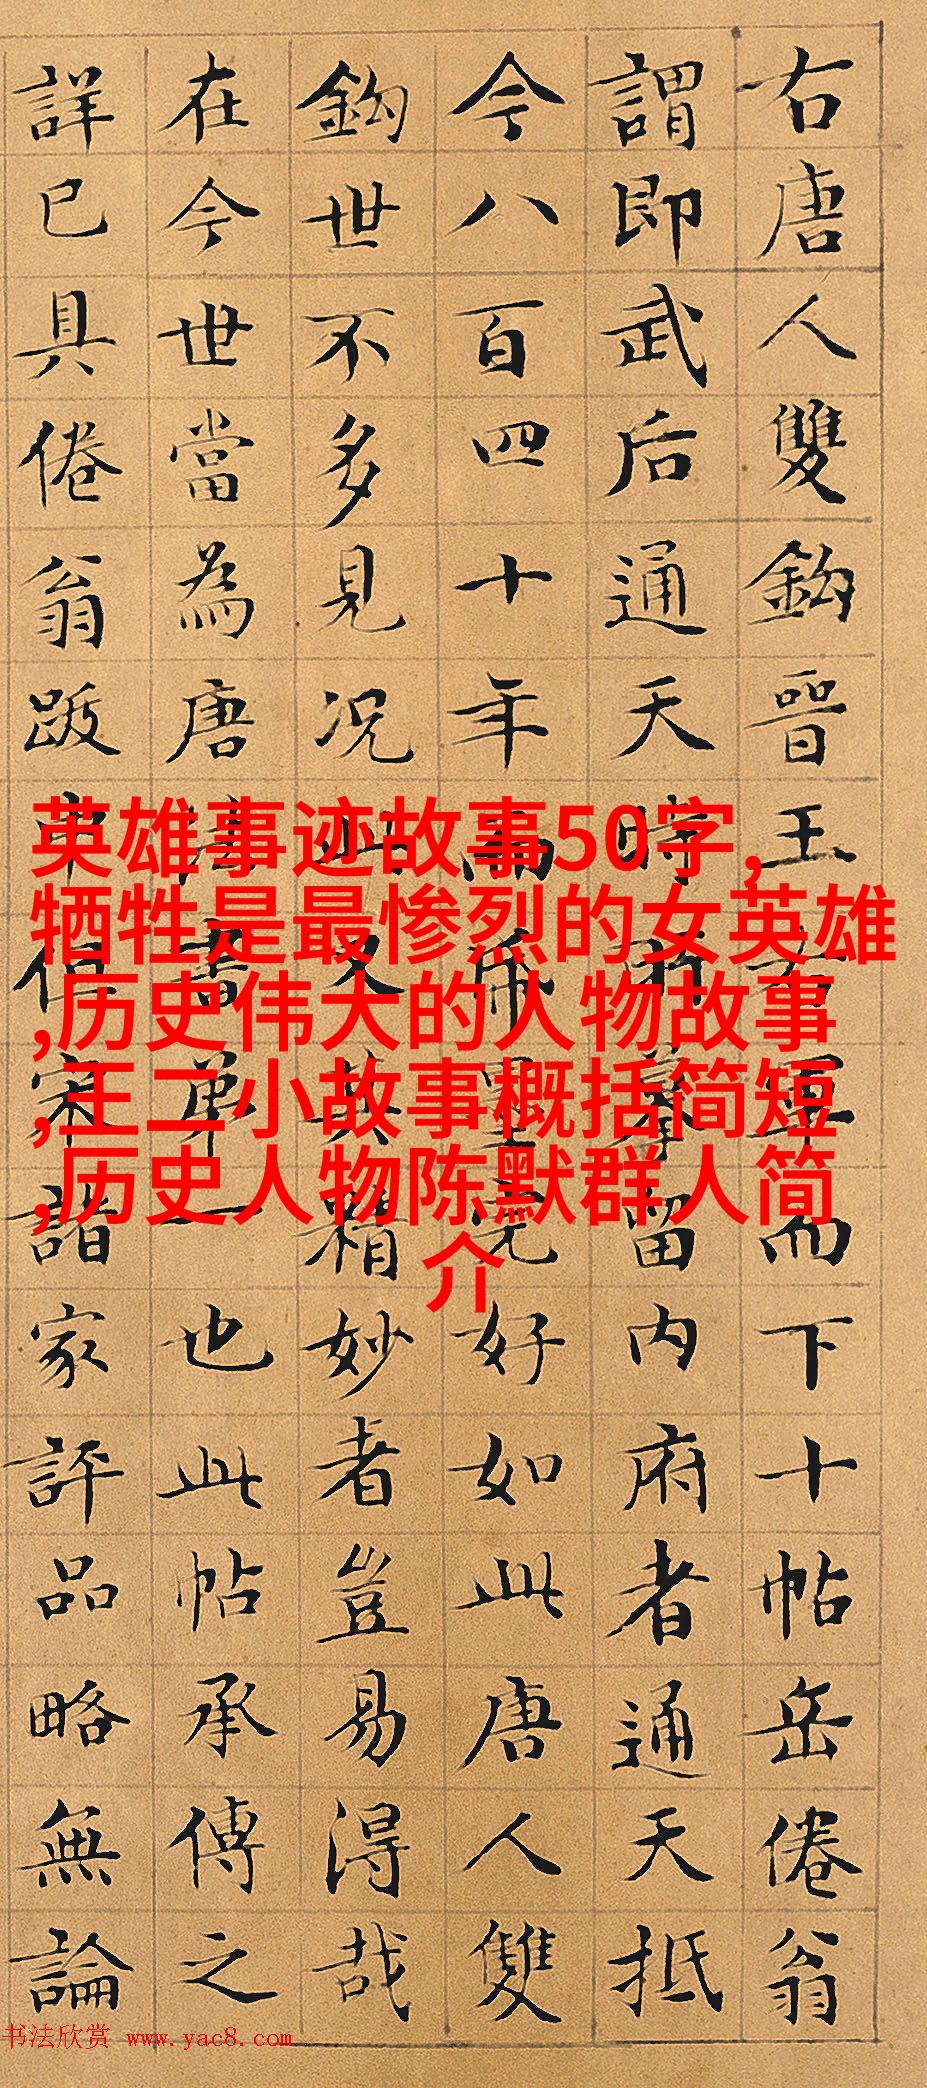 右唐人雙鉤晉王右軍而下十帖岳倦翁
謂即武后通天時所摹留內府者通天抵
今八百四十年帋墨完好如此唐人雙
鉤世不多見況此又其精妙者豈易得哉
在今世當為唐法書第一也此帖承傳之
詳已具倦翁跋但宋諸家評品略無論
英雄事迹故事50字,
牺牲是最惨烈的女英雄
,历史伟大的人物故事
,王二小故事概括简短
,历史人物陈默群人简
介
书法欣赏 www.yac8.com